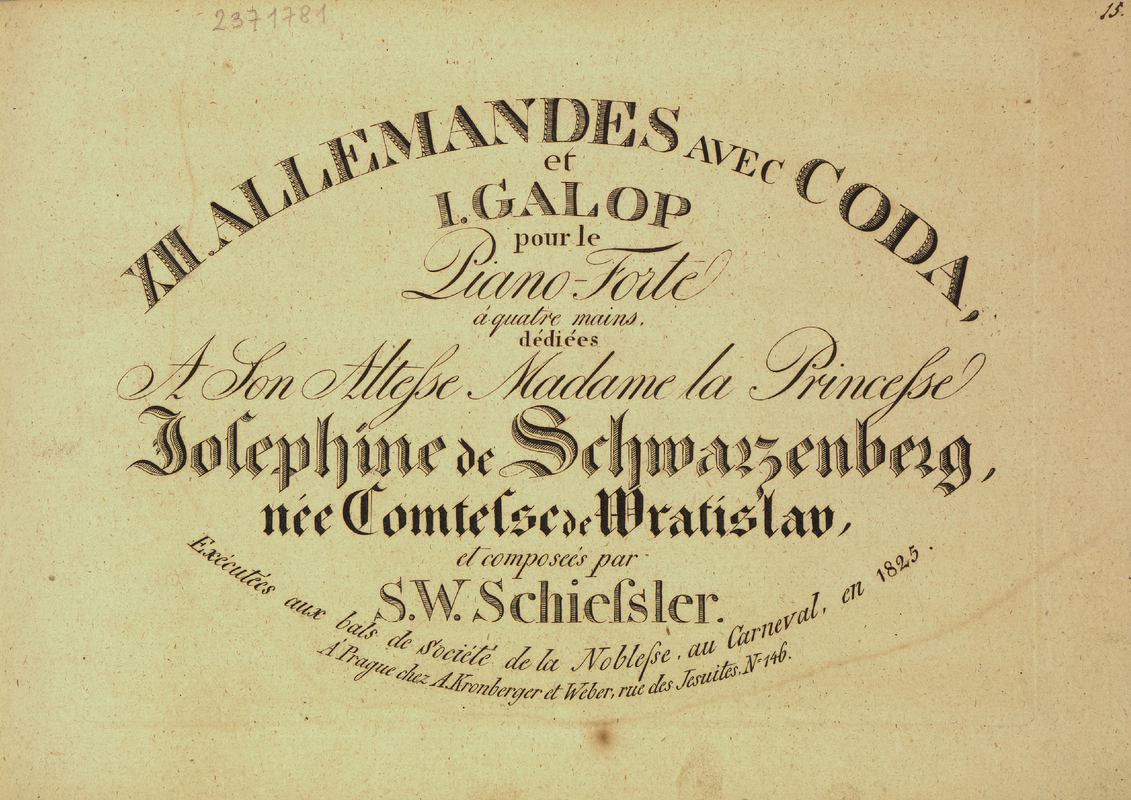 2371781
15.
XII. ALLEMANDES AVEC CODA,
et
I. GALOP
pour le
Piano-Forte
á quatre mains,
dédiées
A Son Alteſse Madame la Princeſse
Joſephine de Schwarzenberg,
née Comteſse de Wratislav,
et composeés par
S. W. Schieſsler.
Exécutées aux bals de société de la Nobleſse, au Carneval, en 1825.
Á Prague chez A. Kronberger et Weber, rue des Jesuites, Nº 146.